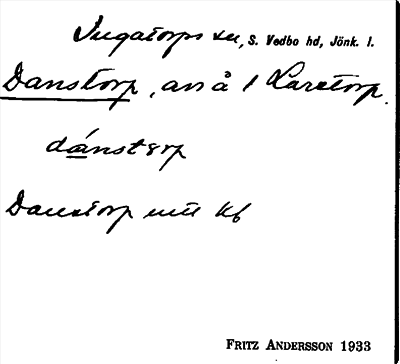 Ingatorps sn, S. Vedbo hd, Jönk. l.
Danstorp, avs å 1 Laretorp.
dánstorp
Danstorp mtl kb
FRITZ ANDERSSON 1933